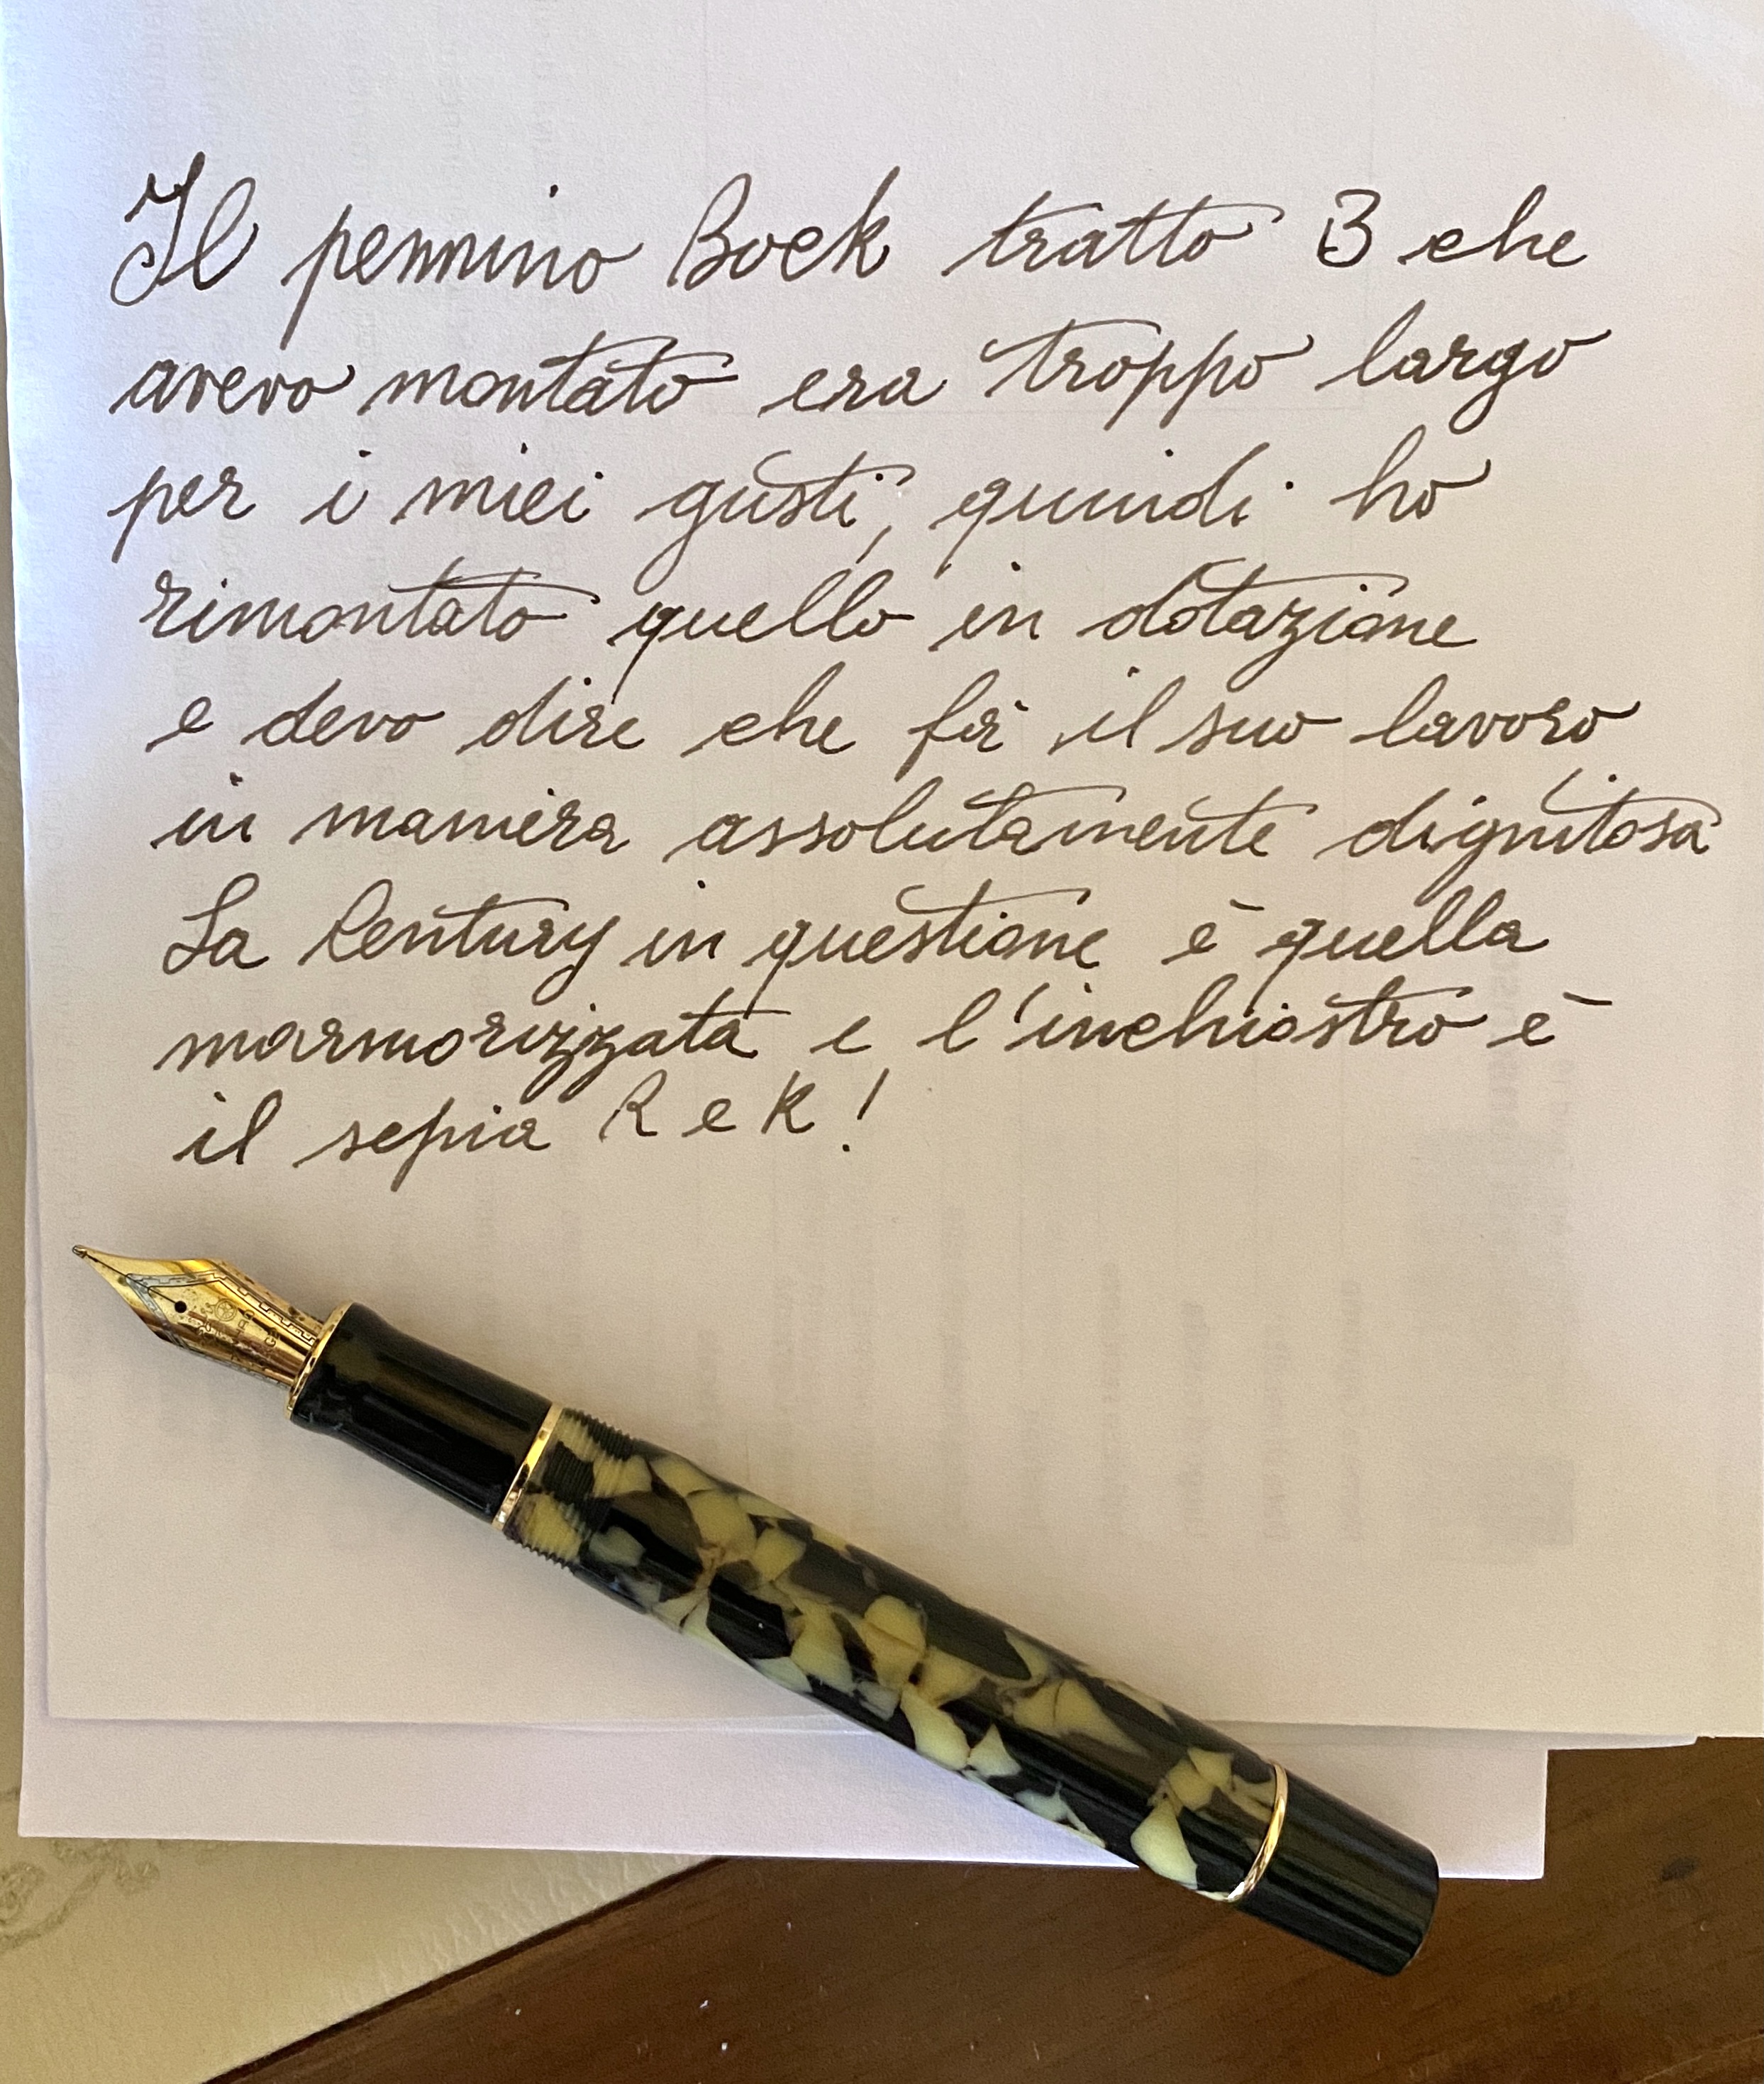 Il pennino Bock tratto B che
avevo montato era troppo largo
per i miei gusti, quindi ho
rimontato quello in dotazione
e devo dire che fà il suo lavoro
in maniera assolutamente dignitosa
La Century in questione è quella
marmorizzata e l'inchiostro è
il sepia R e K!